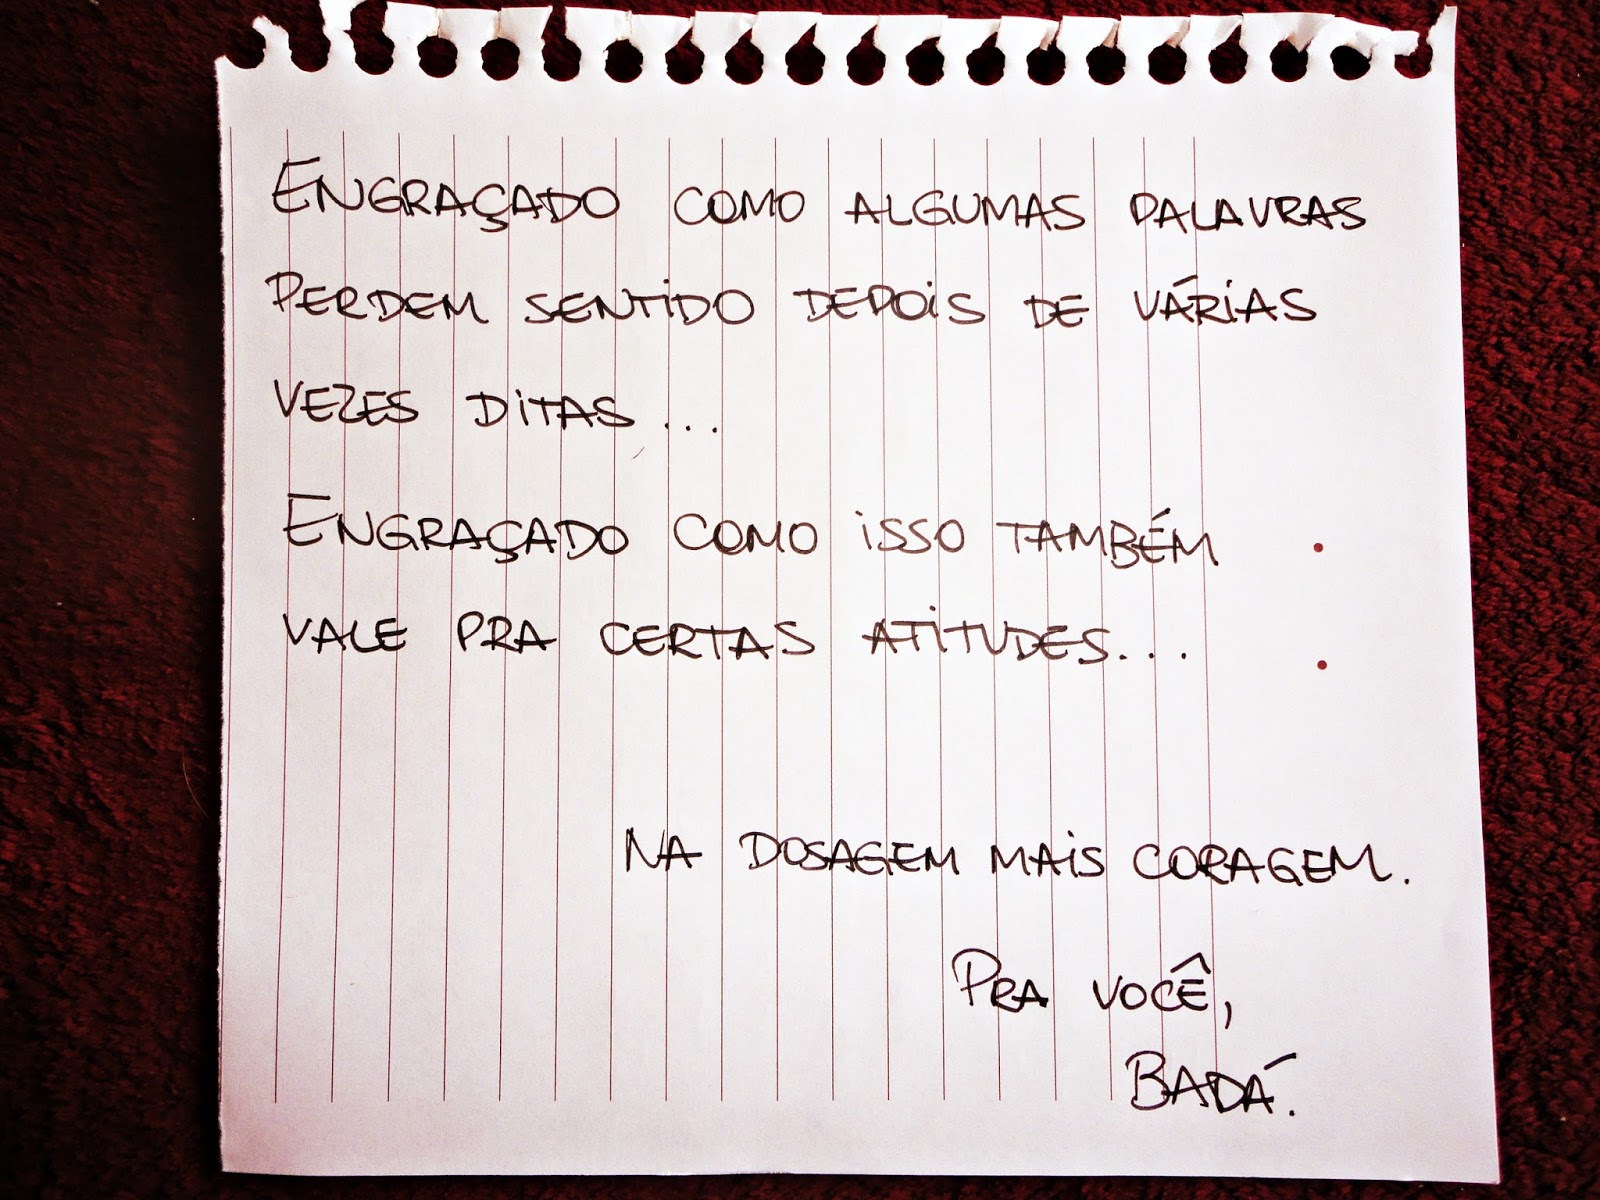 ENGRAÇADO COMO ALGUMAS PALAVRAS
PERDEM SENTIDO DEPOIS DE VÁRIAS
VEZES DITAS...
ENGRAÇADO COMO ISSO TAMBÉM
VALE PRA CERTAS ATITUDES...
NA DOSAGEM MAIS CORAGEM.
PRA VOCÊ,
BADÁ.